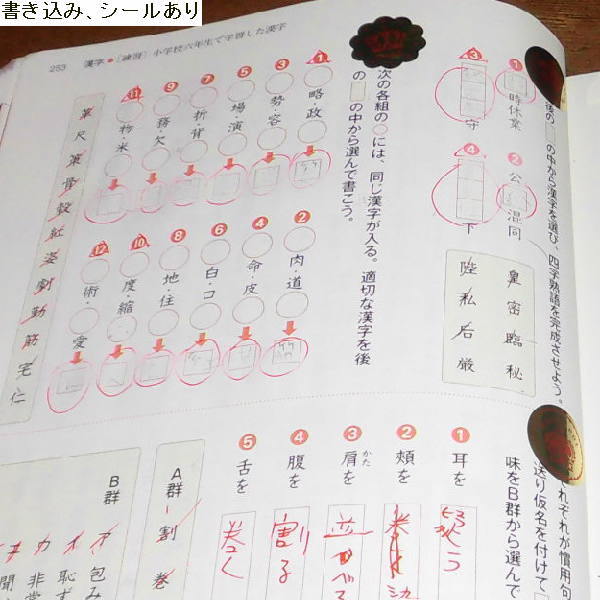 書き込み、シールあり
253 漢字●〔練習〕小学校六年生で学習した漢字
の中から漢字を選び、四字熟語を完成させよう。
1 時休業
2 公 混同
3 守
4 下
皇 密 臨 秘
陛 私 后 厳
次の各組の○には、同じ漢字が入る。適切な漢字を後
の の中から選んで書こう。
1 略・政
2 肉・道
3 勢・容
4 命・皮
5 場・演
6 白・コ
7 折・背
8 地・住
9 務・欠
10 度・縮
11 物・米
12 術・愛
革 尺 策 骨 穀 紅 姿 劇 勤 筋 宅 仁
れぞれが慣用句
送り仮名を付けて
味をB群から選んで
1 耳を
2 頰を
3 肩を
かた
4 腹を 割る
5 舌を 巻く
A群 割 巻
B群
ア 包み
イ 恥ず
カ 非常
キ 聞